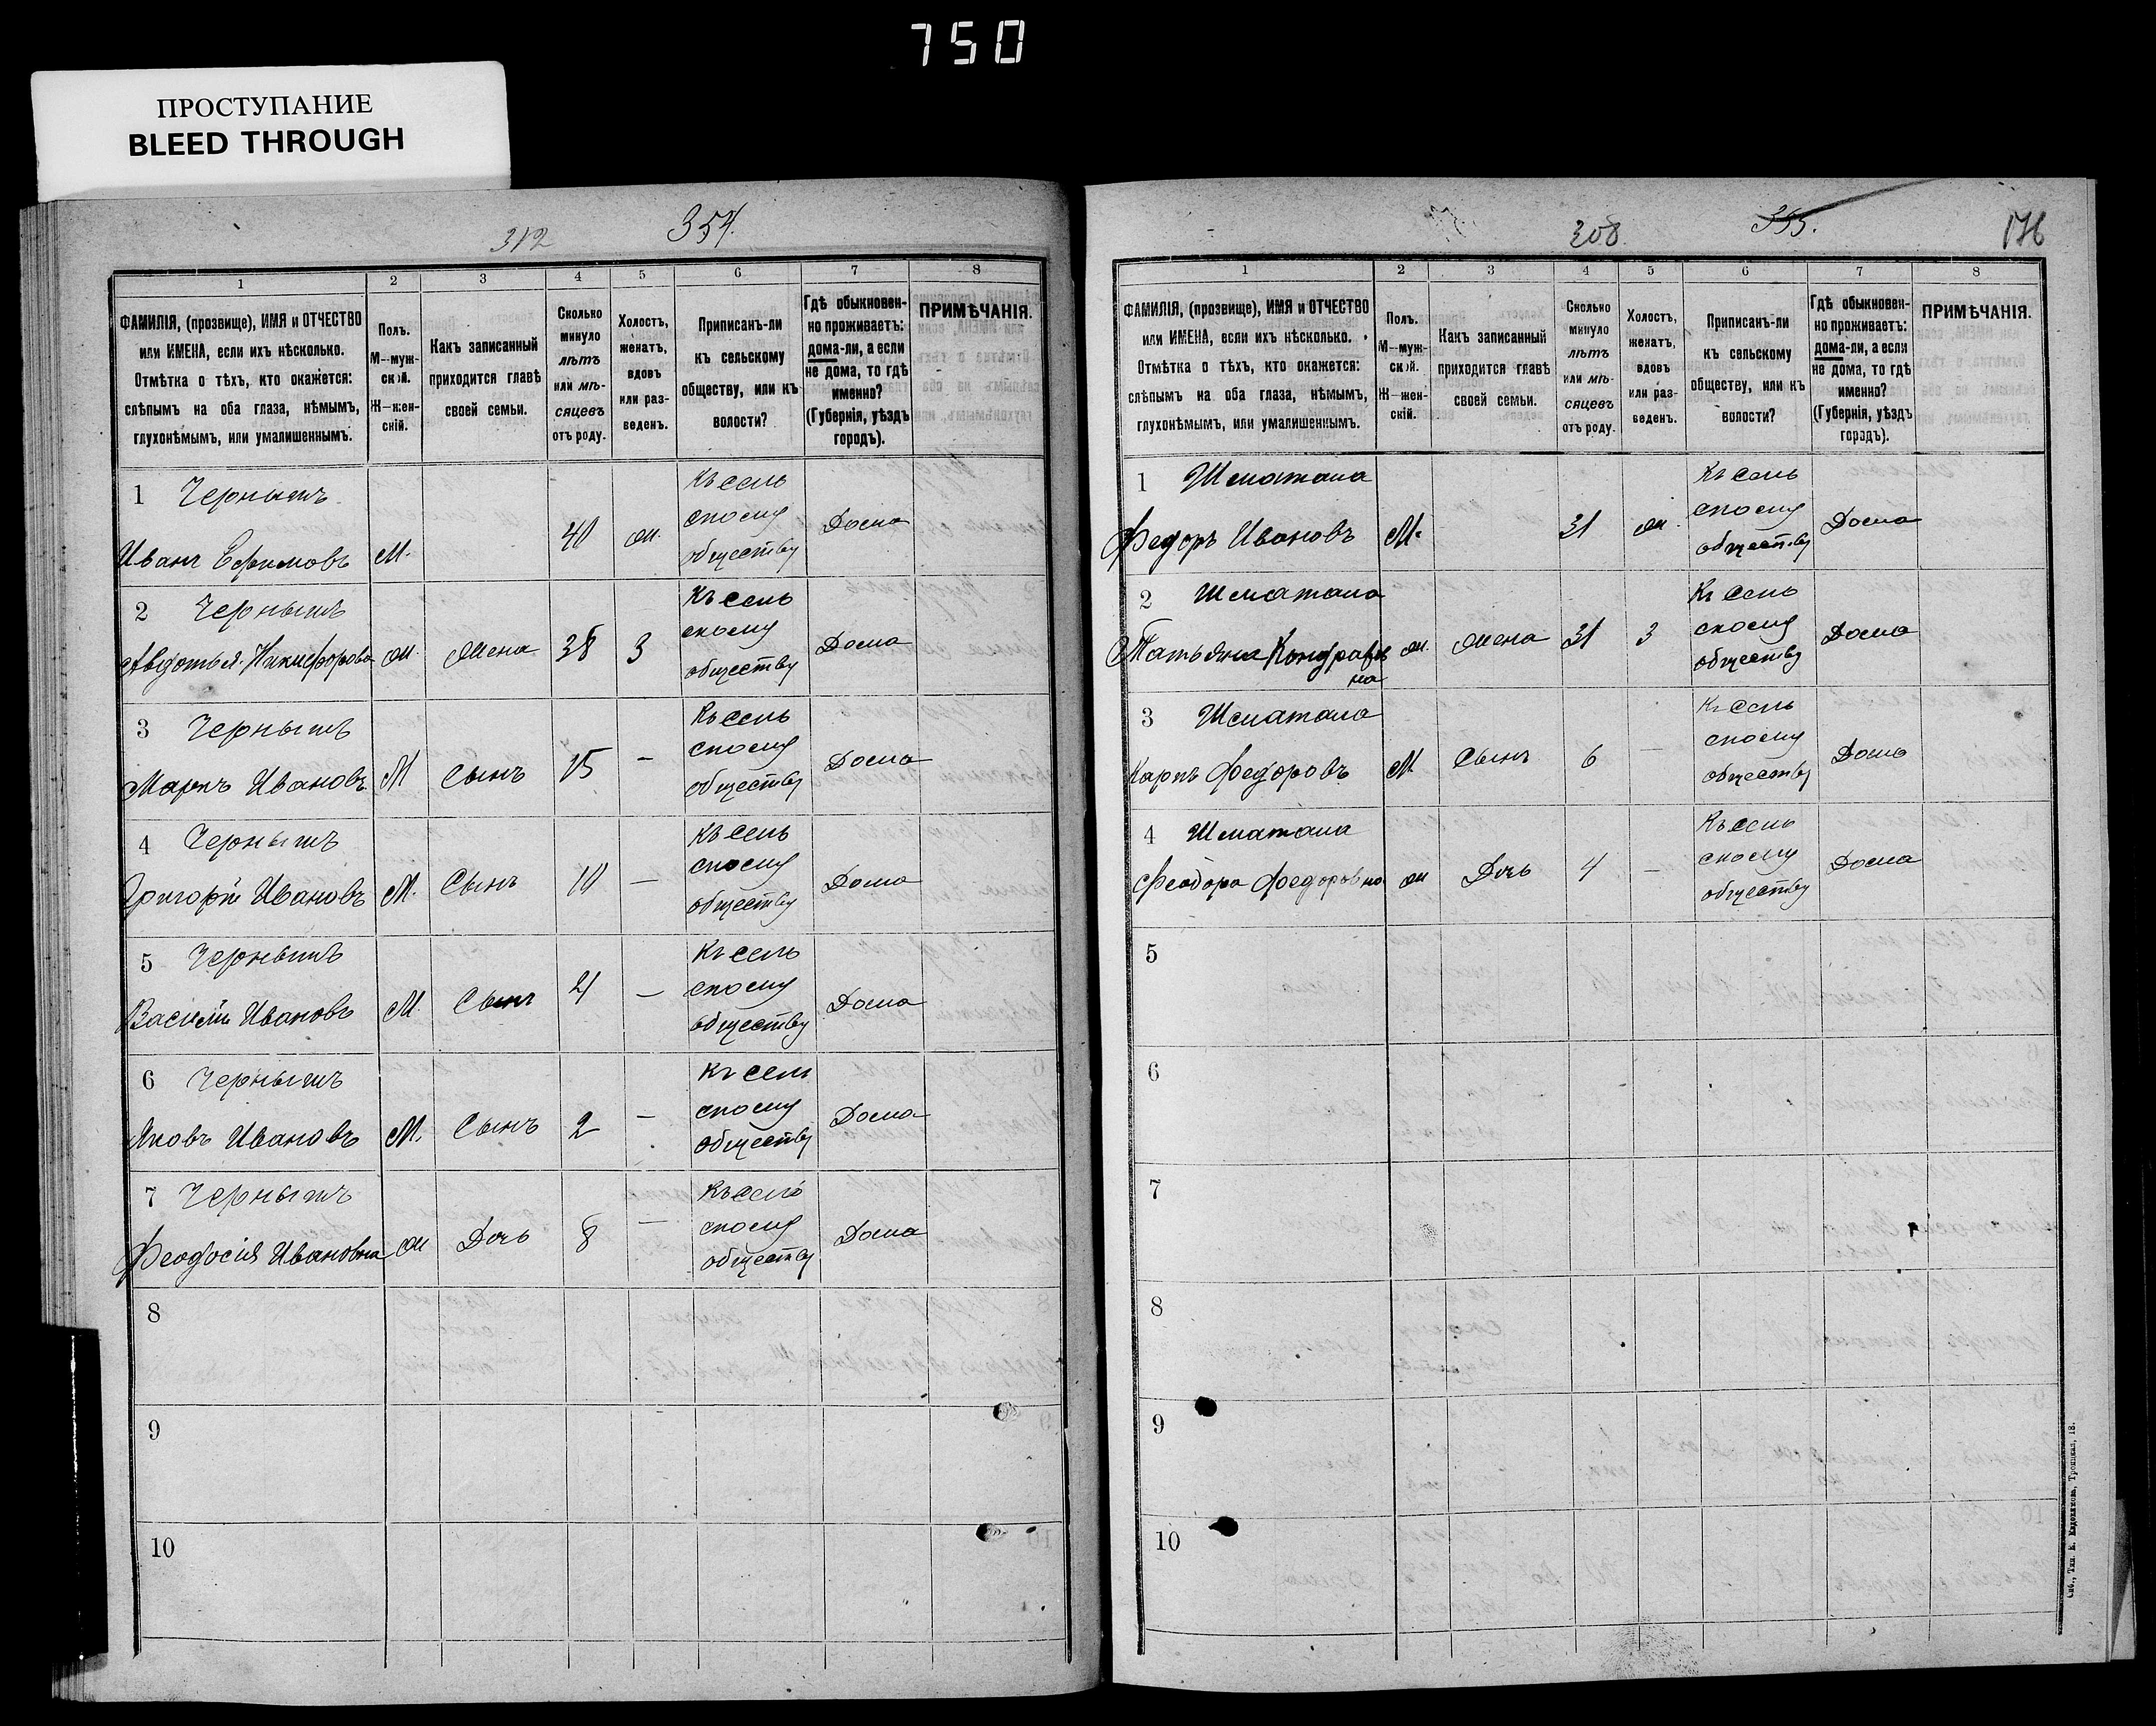 750
ПРОСТУПАНИЕ
BLEED THROUGH
312
354.
1 2 3 4 5 6 7 8
ФАМИЛІЯ, (прозвище), ИМЯ и ОТЧЕСТВО
или ИМЕНА, если ихъ нѣсколько.
Отмѣтка о тѣхъ, кто окажется:
слѣпымъ на оба глаза, нѣмымъ,
глухонѣмымъ, или умалишеннымъ.
Полъ.
М—муж-
ской.
Ж—жен-
скій.
Какъ записанный
приходится главѣ
своей семьи.
Сколько
минуло
лѣтъ
или мѣ-
сяцевъ
отъ роду.
Холостъ,
женатъ,
вдовъ
или раз-
веденъ.
Приписанъ-ли
къ сельскому
обществу, или къ
волости?
Гдѣ обыкновен-
но проживаетъ:
дома-ли, а если
не дома, то гдѣ
именно?
(Губернія, уѣздъ
городъ).
ПРИМѢЧАНІЯ.
1 Чернышъ
Иванъ Ефимовъ М. 40 ж.
Къ сель
скому
обществу
Дома
2 Чернышъ
Авдотья Никифорова ж. Жена 38 З
Къ сель
скому
обществу
Дома
3 Чернышъ
Маркъ Ивановъ М Сынъ 15 —
Къ сель
скому
обществу
Дома
4 Чернышъ
Григорій Ивановъ М. Сынъ 10 —
Къ сель
скому
обществу
Дома
5 Чернышъ
Василій Ивановъ М. Сынъ 4 —
Къ сель
скому
обществу
Дома
6 Чернышъ
Яковъ Ивановъ М. Сынъ 2 —
Къ сель
скому
обществу
Дома
7 Чернышъ
Феодосія Ивановна ж Дочь 8 —
Къ сель
скому
обществу
Дома
8
9
10
308.
355.
176
1 2 3 4 5 6 7 8
ФАМИЛІЯ, (прозвище), ИМЯ и ОТЧЕСТВО
или ИМЕНА, если ихъ нѣсколько.
Отмѣтка о тѣхъ, кто окажется:
слѣпымъ на оба глаза, нѣмымъ,
глухонѣмымъ, или умалишеннымъ.
Полъ.
М—муж-
ской.
Ж—жен-
скій.
Какъ записанный
приходится главѣ
своей семьи.
Сколько
минуло
лѣтъ
или мѣ-
сяцевъ
отъ роду.
Холостъ,
женатъ,
вдовъ
или раз-
веденъ.
Приписанъ-ли
къ сельскому
обществу, или къ
волости?
Гдѣ обыкновен-
но проживаетъ:
дома-ли, а если
не дома, то гдѣ
именно?
(Губернія, уѣздъ
городъ).
ПРИМѢЧАНІЯ.
1 Шматала
Федоръ Ивановъ М. 31 ж.
Къ сель
скому
обществу
Дома
2 Шматала
Татьяна Кондратов ж. Жена 31 З
на
Къ сель
скому
обществу
Дома
3 Шматала
Карпъ Федоровъ М. Сынъ 6 —
Къ сель
скому
обществу
Дома
4 Шматала
Феодора Федоровна ж Дочь 4 —
Къ сель
скому
обществу
Дома
5
6
7
8
9
10